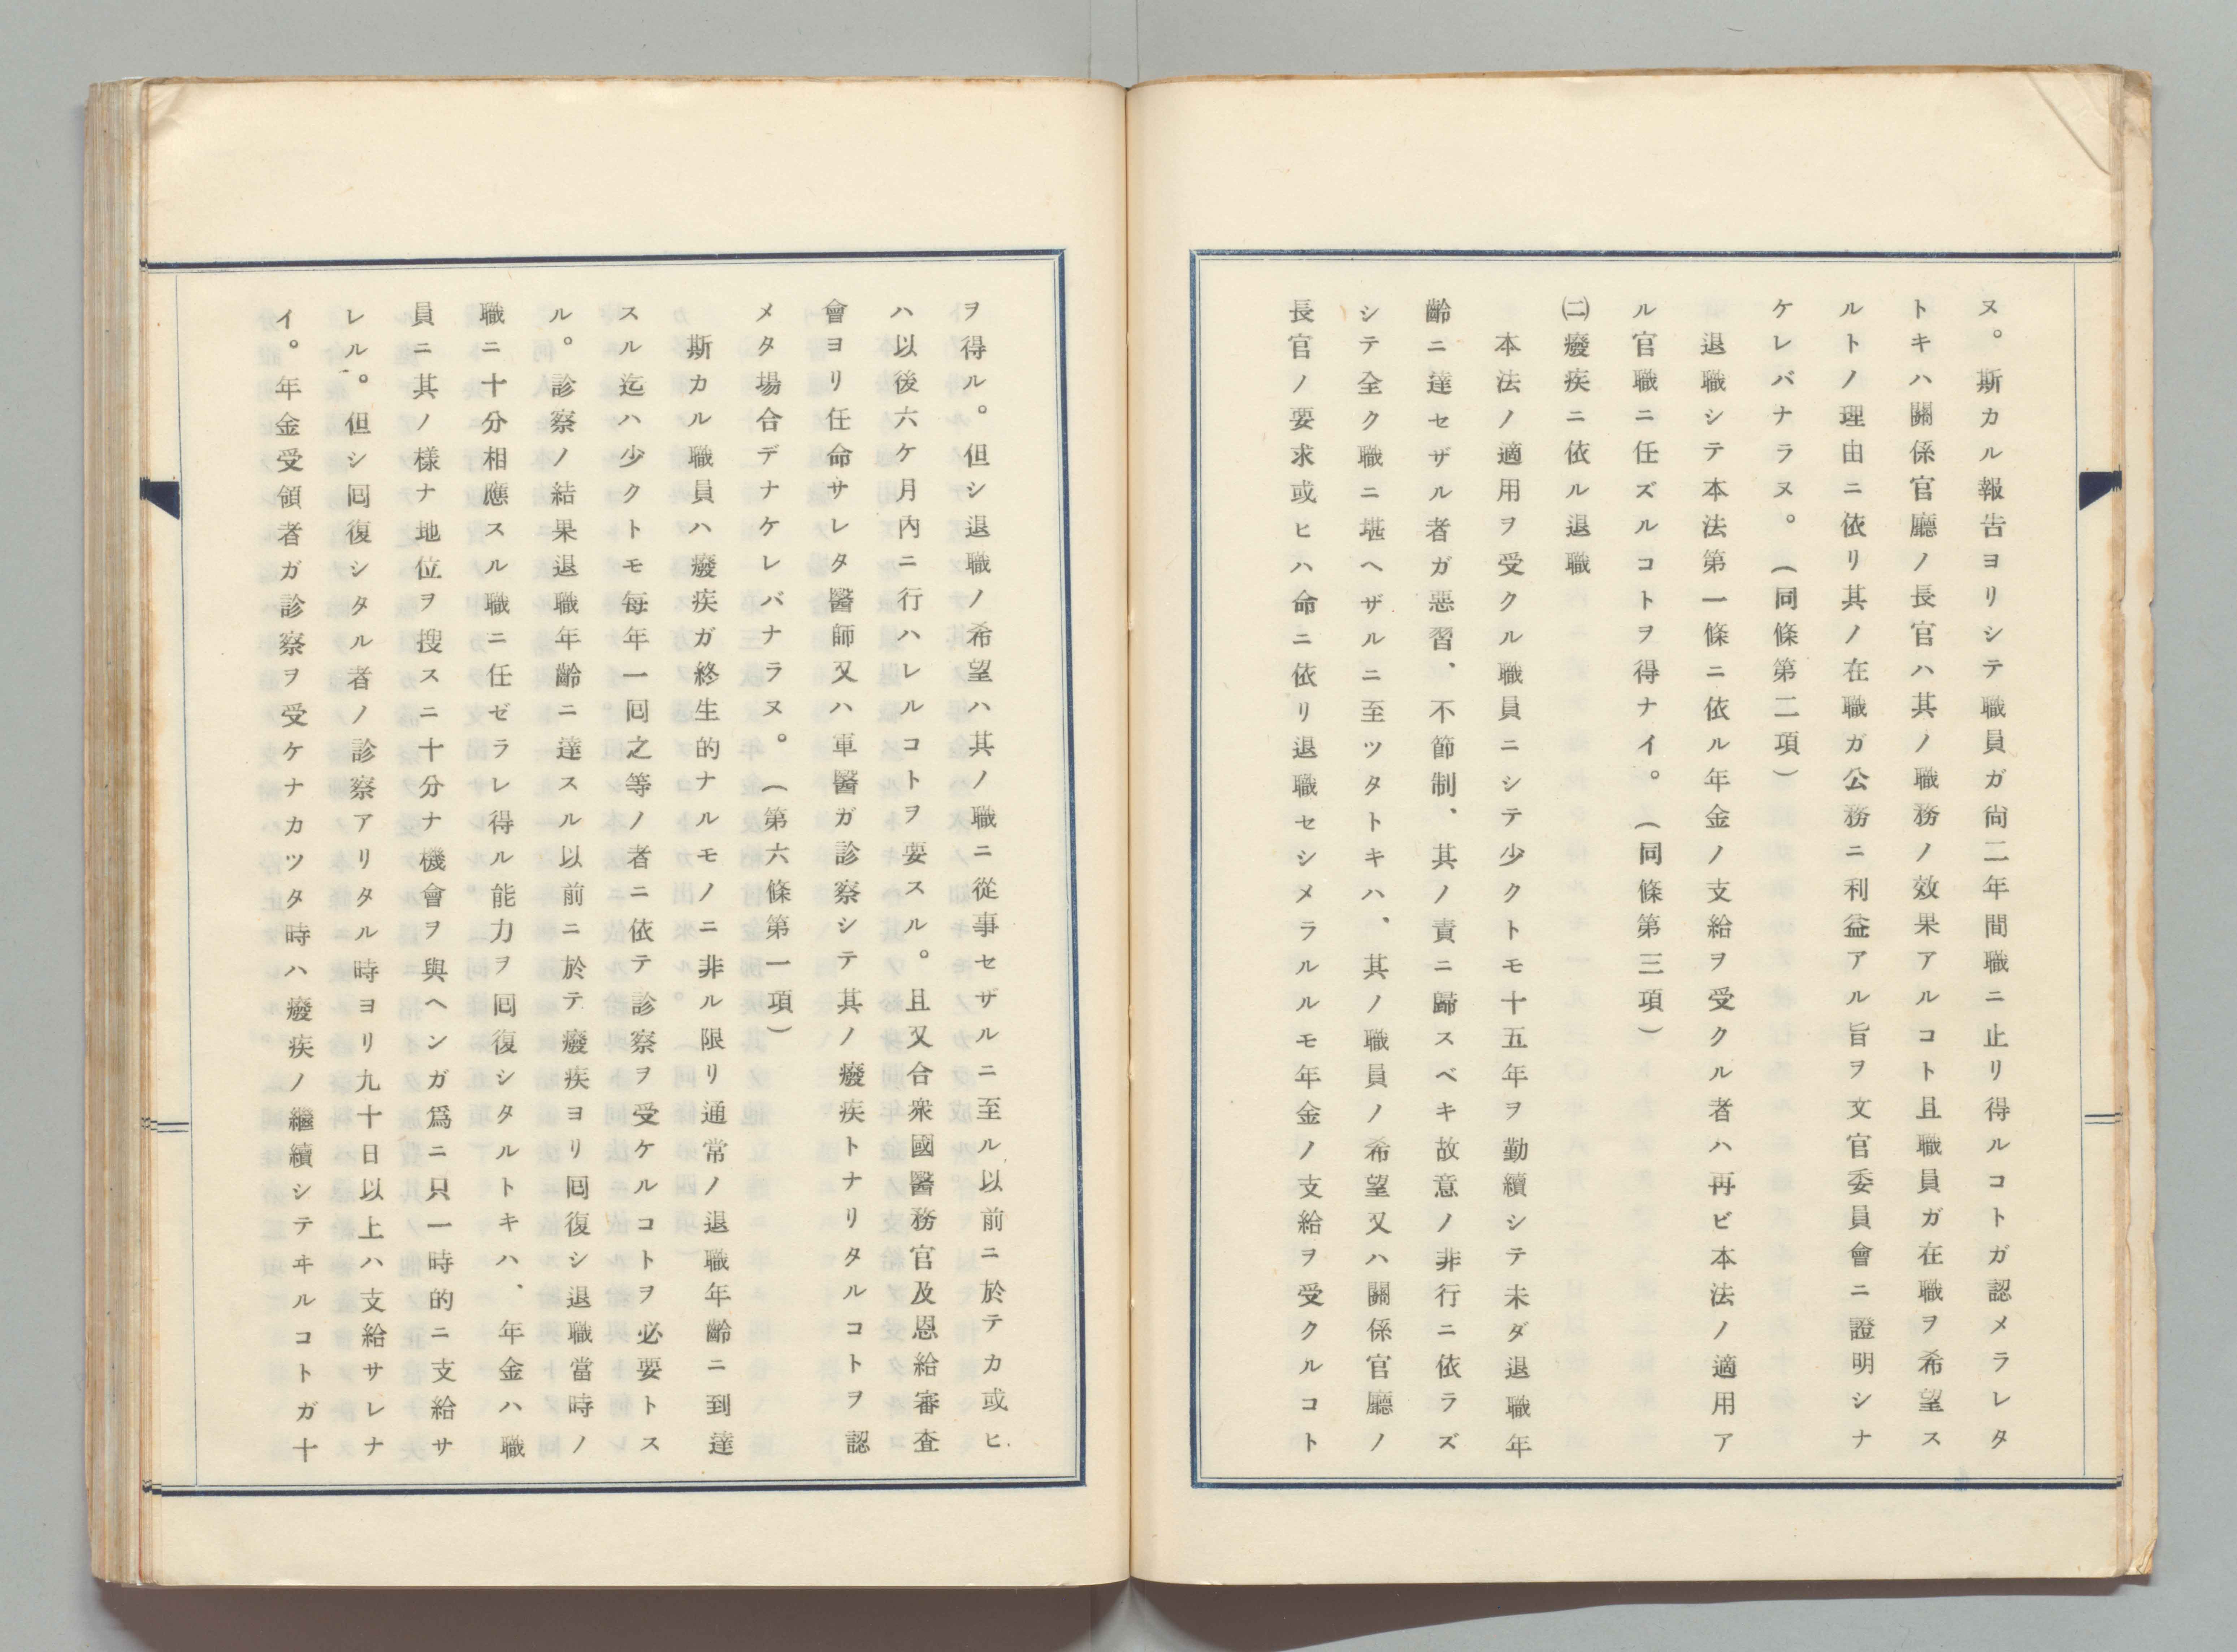 ヌ。斯カル報告ヨリシテ職員ガ尙二年間職ニ止リ得ルコトガ認メラレタ
トキハ關係官廳ノ長官ハ其ノ職務ノ效果アルコト且職員ガ在職ヲ希望ス
ルトノ理由ニ依リ其ノ在職ガ公務ニ利益アル旨ヲ文官委員會ニ證明シナ
ケレバナラヌ。(同條第二項)
退職シテ本法第一條ニ依ル年金ノ支給ヲ受クル者ハ再ビ本法ノ適用ア
ル官職ニ任ズルコトヲ得ナイ。(同條第三項)
㈡癈疾ニ依ル退職
本法ノ適用ヲ受クル職員ニシテ少クトモ十五年ヲ勤續シテ未ダ退職年
齡ニ達セザル者ガ惡習、不節制、其ノ責ニ歸スベキ故意ノ非行ニ依ラズ
シテ全ク職ニ堪ヘザルニ至ツタトキハ、其ノ職員ノ希望又ハ關係官廳ノ
長官ノ要求或ヒハ命ニ依リ退職セシメラルルモ年金ノ支給ヲ受クルコト
ヲ得ル。但シ退職ノ希望ハ其ノ職ニ從事セザルニ至ル以前ニ於テカ或ヒ
ハ以後六ケ月內ニ行ハレルコトヲ要スル。且又合衆國醫務官及恩給審査
會ヨリ任命サレタ醫師又ハ軍醫ガ診察シテ其ノ癈疾トナリタルコトヲ認
メタ場合デナケレバナラヌ。(第六條第一項)
斯カル職員ハ癈疾ガ終生的ナルモノニ非ル限リ通常ノ退職年齡ニ到達
スル迄ハ少クトモ每年一囘之等ノ者ニ依テ診察ヲ受ケルコトヲ必要トス
ル。診察ノ結果退職年齡ニ達スル以前ニ於テ癈疾ヨリ囘復シ退職當時ノ
職ニ十分相應スル職ニ任ゼラレ得ル能力ヲ囘復シタルトキハ、年金ハ職
員ニ其ノ樣ナ地位ヲ搜スニ十分ナ機會ヲ與ヘンガ爲ニ只一時的ニ支給サ
レル。但シ囘復シタル者ノ診察アリタル時ヨリ九十日以上ハ支給サレナ
イ。年金受領者ガ診察ヲ受ケナカツタ時ハ癈疾ノ繼續シテヰルコトガ十